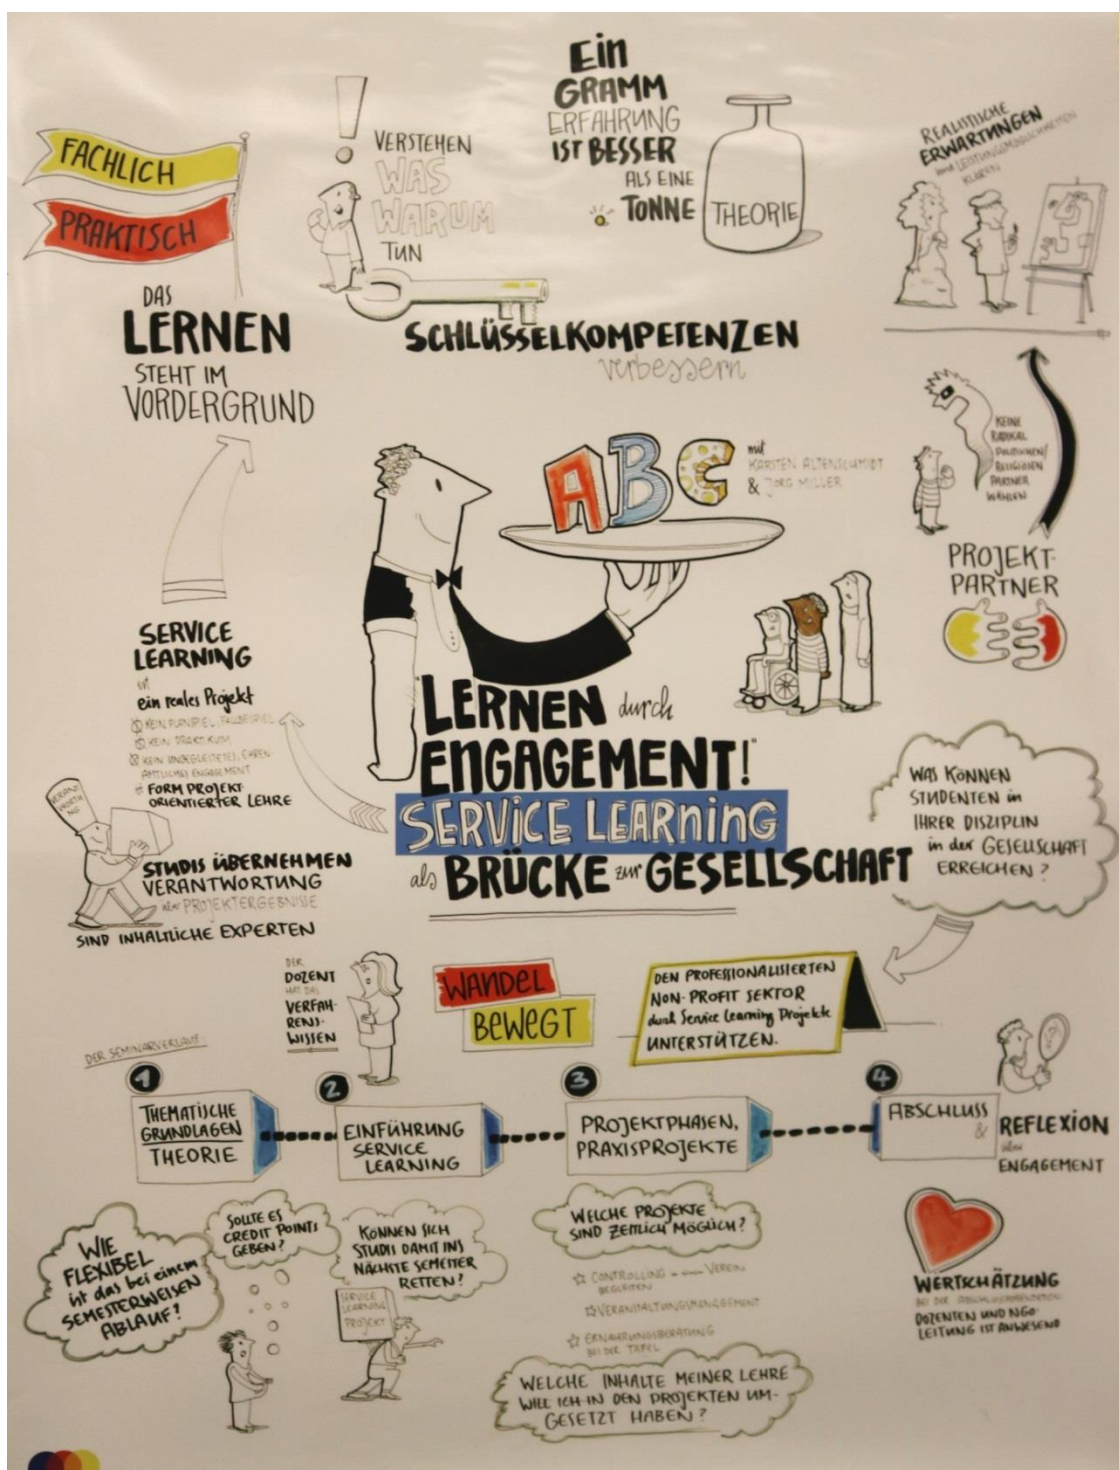 FACHLICH
PRAKTISCH
DAS
LERNEN
STEHT IM
VORDERGRUND
VERSTEHEN
WAS
WARUM
TUN
SCHLÜSSELKOMPETENZEN
verbessern
Ein
GRAMM
ERFAHRUNG
IST BESSER
ALS EINE
TONNE
THEORIE
REALISTISCHE
ERWARTUNGEN
und LEISTUNGSMÖGLICHKEITEN
KLÄREN
KEINE
RADIKAL
POLITISCHEN/
RELIGIÖSEN
PARTNER
WÄHLEN
PROJEKT-
PARTNER
ABC
mit
KARSTEN ALTENSCHMIDT
& JÖRG MILLER
"LERNEN durch
ENGAGEMENT!"
SERVICE LEARNING
als BRÜCKE zur GESELLSCHAFT
SERVICE
LEARNING
ist
ein reales Projekt
KEIN PLANSPIEL, FALLBEISPIEL
KEIN PRAKTIKUM
KEIN UNBEGLEITETES, EHREN
AMTLICHES ENGAGEMENT
FORM PROJEKT-
ORIENTIERTER LEHRE
VERANT
WORTU
NG
STUDIS ÜBERNEHMEN
VERANTWORTUNG
über PROJEKTERGEBNISSE
SIND INHALTLICHE EXPERTEN
WAS KÖNNEN
STUDENTEN in
IHRER DISZIPLIN
in der GESELLSCHAFT
ERREICHEN?
DER
DOZENT
HAT DAS
VERFAH-
RENS-
WISSEN
WANDEL
BEWEGT
DEN PROFESSIONALISIERTEN
NON-PROFIT SEKTOR
durch Service Learning Projekte
UNTERSTÜTZEN.
DER SEMINARVERLAUF:
1
THEMATISCHE
GRUNDLAGEN
THEORIE
2
EINFÜHRUNG
SERVICE
LEARNING
3
PROJEKTPHASEN,
PRAXISPROJEKTE
4
ABSCHLUSS
& REFLEXION
über
ENGAGEMENT
WIE
FLEXIBEL
ist das bei einem
SEMESTERWEISEN
ABLAUF?
SOLLTE ES
CREDIT POINTS
GEBEN?
KÖNNEN SICH
STUDIS DAMIT INS
NÄCHSTE SEMESTER
RETTEN?
SERVICE
LEARNING
PROJEKT
WELCHE PROJEKTE
SIND ZEITLICH MÖGLICH?
CONTROLLING in einem VEREIN
BEGLEITEN
VERANSTALTUNGSMANAGEMENT
ERNÄHRUNGSBERATUNG
BEI DER TAFEL
WELCHE INHALTE MEINER LEHRE
WILL ICH IN DEN PROJEKTEN UM-
GESETZT HABEN?
WERTSCHÄTZUNG
BEI DER ABSCHLUSSPRÄSENTATION
DOZENTEN UND NGO-
LEITUNG IST ANWESEND